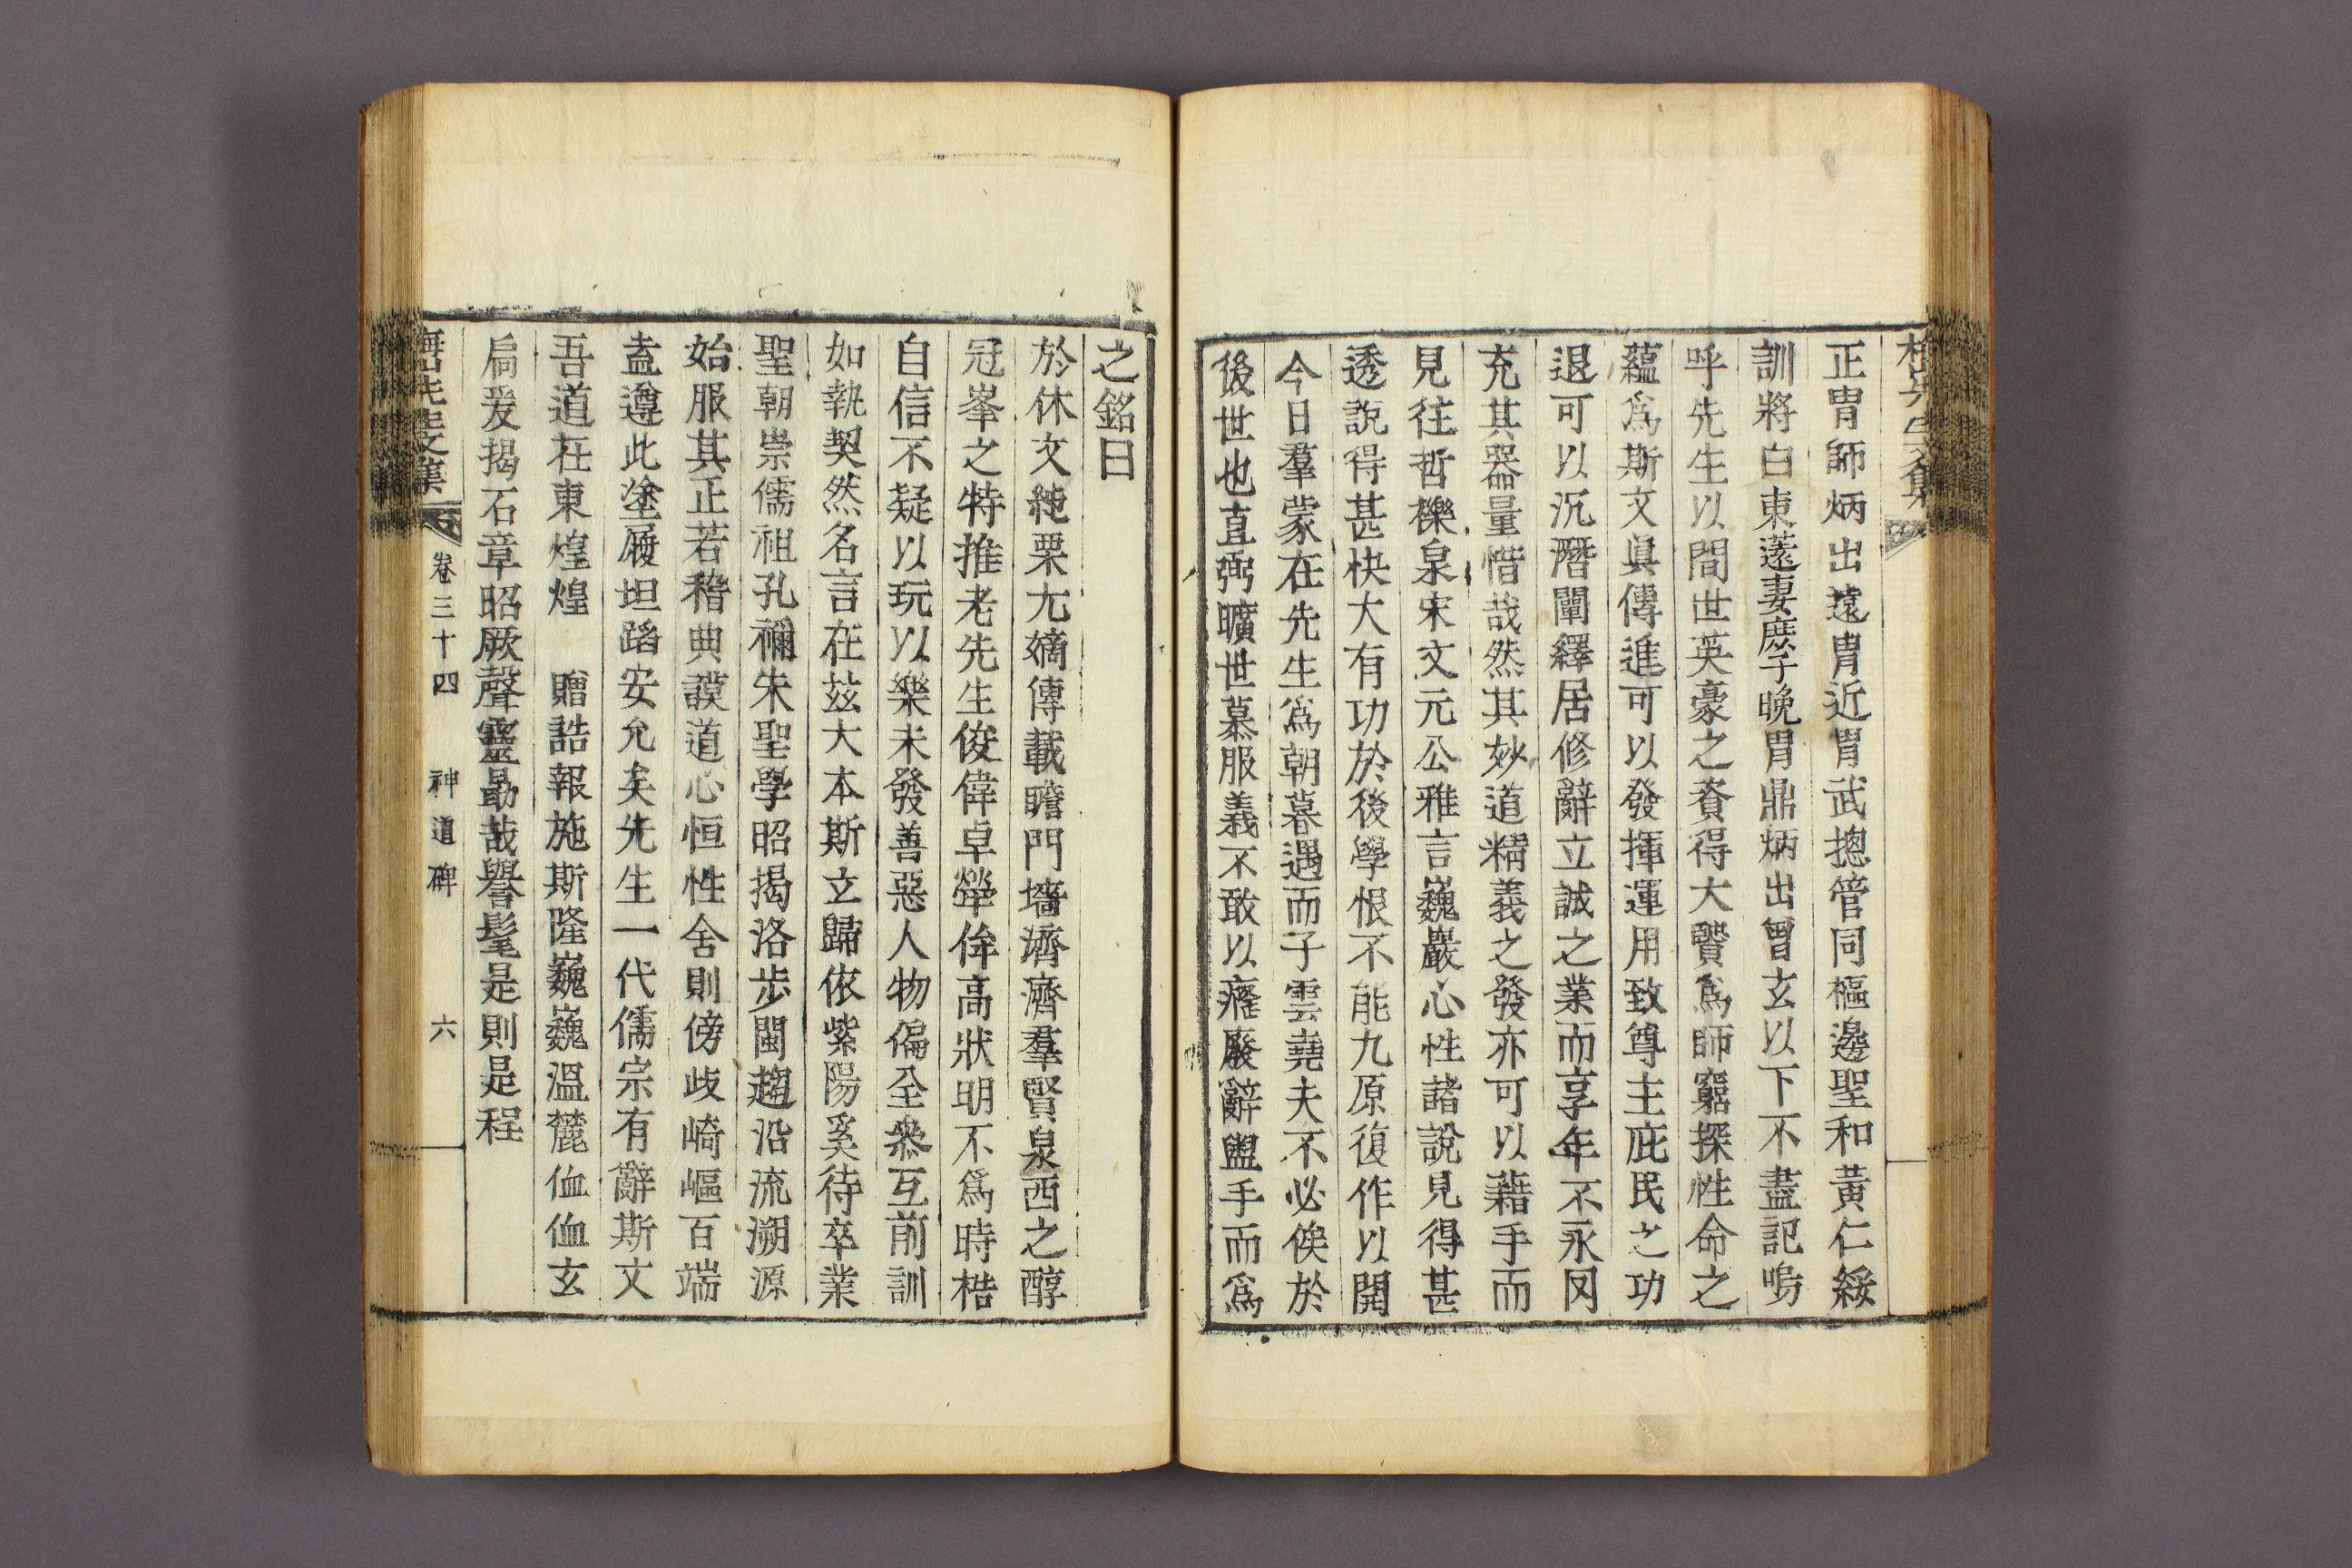 正冑師炳出遠冑近冑武摠管同樞邊聖和黃仁綏
訓將白東薳妻庶子晚冑鼎炳出曾玄以下不盡記嗚
呼先生以間世英豪之資得大贒爲師窮探性命之
蘊爲斯文眞傳進可以發揮運用致尊主庇民之功
退可以沉潛闡繹居修辭立誠之業而享年不永罔
充其器量惜哉然其妙道精義之發亦可以藉手而
見往哲櫟泉宋文元公雅言巍巖心性諸說見得甚
透說得甚快大有功於後學恨不能九原復作以開
今日羣蒙在先生爲朝暮遇而子雲堯夫不必俟於
後世也直弼曠世慕服義不敢以癃廢辭盥手而爲
之銘曰
於休文純栗尢嫡傳載瞻門墻濟濟羣賢泉西之醇
冠峯之特推老先生俊偉卓犖侔高狀明不爲時梏
自信不疑以玩以樂未發善惡人物偏全叅互前訓
如執契然名言在玆大本斯立歸依紫陽奚待卒業
聖朝崇儒祖孔禰朱聖學昭揭洛步閩趨沿流溯源
始服其正若稽典謨道心恒性舍則傍歧崎嶇百端
盍遵此塗履坦蹈安允矣先生一代儒宗有辭斯文
吾道在東煌煌　贈誥報施斯隆巍巍溫麓侐侐玄
扃爰揭石章昭厥聲靈勗哉譽髦是則是程
梅山先生文集　卷三十四　神道碑　六